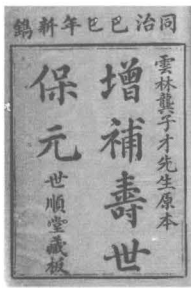 同治己巳年新鐫
雲林龔子才先生原本
增補壽世
保元
世順堂藏板